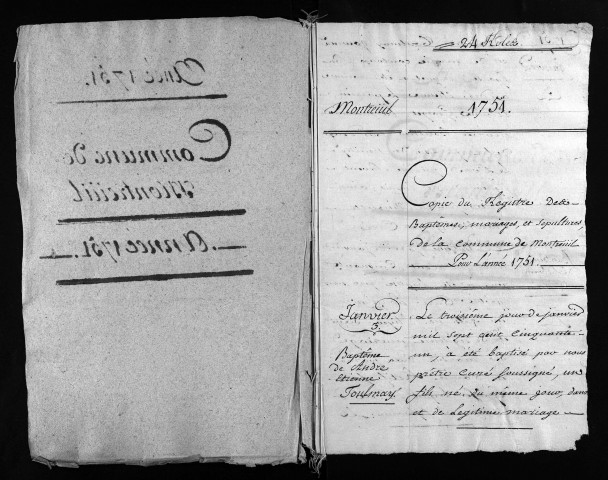 Année 1751.
Commune de
Montreuil
Année 1751.
24 Roles
Montreuil 1751.
Copie du Registre Des
Baptêmes, mariages, et sepultures,
de la commune de Montreuil
Pour L'année 1751.
Janvier
3.
Baptême
de André
Etienne
Toulnay
Le troisiéme jour de janvier
mil sept cent cinquante-
un, à été baptisé par nous
prêtre curé soussigné, un
fils né du même jour, dans
et de Legitime mariage